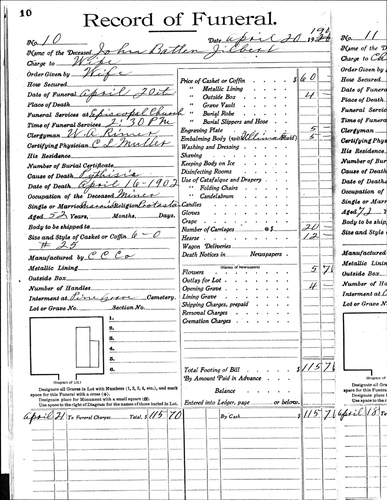 10
Record of Funeral.
No. 10 Date, April 20 1902
Name of the Deceased John Batten Gilbert
Charge to Wife
Order Given by Wife
How Secured
Date of Funeral April 20th
Place of Death
Funeral Services at Episcopel Church
Time of Funeral Services 2:30 P.M.
Clergyman W A Rimer
Certifying Physician C L Muller
His Residence
Number of Burial Certificate
Cause of Death Pythisis
Date of Death April 16-1902
Occupation of the Deceased Miner
Single or Married Married Religion
Aged 52 Years, Months, Days.
Body to be shipped to
Size and Style of Casket or Coffin 6-0
# 25
Manufactured by C C Co
Metallic Lining
Outside Box
Number of Handles
Interment at Pine Grove Cemetery.
Lot or Grave No. Section No.
1.
2.
3.
4.
5.
6.
(Diagram of Lot.)
Designate all Graves in Lot with Numbers (1, 2, 3, 4, etc.), and mark
space for this Funeral with a cross (+).
Designate place for Monument with a small square
Use space to the right of Diagram for the names of those buried in Lot.
Price of Casket or Coffin $ 60
" Metallic Lining
" Outside Box 4
" Grave Vault
" Burial Robe
" Burial Slippers and Hose
Engraving Plate 5
Embalming Body (with Fluid) 5
Washing and Dressing
Shaving
Keeping Body on Ice
Disinfecting Rooms
Use of Catafalque and Drapery
" Folding Chairs
" Candelabrum
Candles
Gloves
Crape
Number of Carriages @ $ 20
Hearse 12
Wagon Deliveries
Death Notices in Newspapers
(Names of Newspapers)
Flowers 5 7
Outlay for Lot
Opening Grave 4
Lining Grave
Shipping Charges, prepaid
Personal Charges
Cremation Charges
Total Footing of Bill $ 115 7
By Amount Paid in Advance
Balance
Entered into Ledger, page or below.
April 21 To Funeral Charges Total, $ 115 70 By Cash $ 115 7
No. 11
Name of
Charge to Ch
Order Given
How Secured
Date of Fu
Place of De
Funeral Se
Time of Fu
Clergyman
Certifying
His Reside
Number of
Cause of D
Date of De
Occupation
Single or M
Aged 72
Body to be
Size and S
Manufactu
Metallic L
Outside Bo
Number of
Interment
Lot or Gra
Designate
space for thi
Designate
Use space
April 18 To